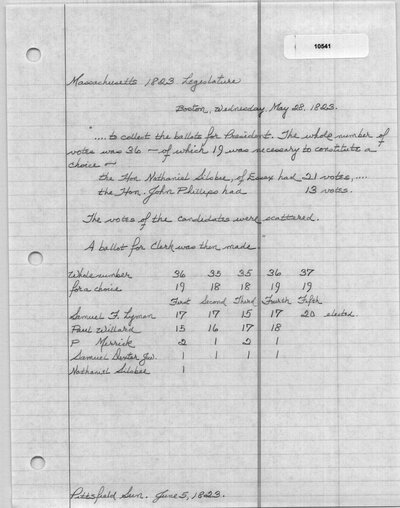 10541
Massachusetts 1823 Legislature
Boston, Wednesday May 28, 1823.
".... to collect the ballots for President. The whole number of
votes was 36 – of which 19 was necessary to constitute a
choice –
the Hon Nathaniel Silsbee, of Essex had 21 votes, ....
the Hon. John Phillips had 13 votes.
The votes of the candidates were scattered.
A ballot for Clerk was then made.
Whole number 36 35 35 36 37
for a choice 19 18 18 19 19
First Second Third Fourth Fifth
Samuel F. Lyman 17 17 15 17 20 elected.
Paul Willard 15 16 17 18
P Merrick 2 1 2 1
Samuel Dexter Jr. 1 1 1 1
Nathaniel Silsbee 1
Pittsfield Sun. June 5, 1823.